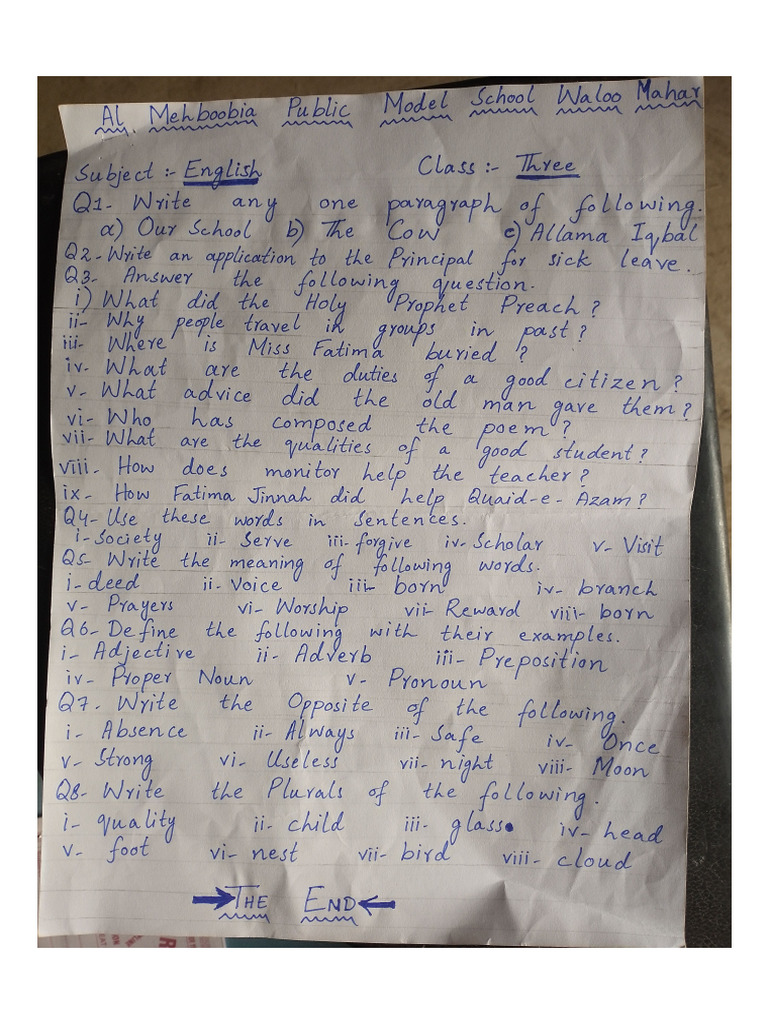 Al Mehboobia Public Model School Waloo Mahar
Subject :- English Class :- Three
Q1- Write any one paragraph of following.
a) Our School b) The Cow c) Allama Iqbal
Q2- Write an application to the Principal for sick leave.
Q3- Answer the following question.
i) What did the Holy Prophet Preach?
ii- Why people travel in groups in past?
iii- Where is Miss Fatima buried?
iv- What are the duties of a good citizen?
v- What advice did the old man gave them?
vi- Who has composed the poem?
vii- What are the qualities of a good student?
viii- How does monitor help the teacher?
ix- How Fatima Jinnah did help Quaid-e-Azam?
Q4- Use these words in Sentences.
i- Society ii- Serve iii- forgive iv- Scholar v- Visit
Q5- Write the meaning of following words.
i- deed ii- Voice iii- born iv- branch
v- Prayers vi- Worship vii- Reward viii- born
Q6- Define the following with their examples.
i- Adjective ii- Adverb iii- Preposition
iv- Proper Noun v- Pronoun
Q7- Write the Opposite of the following.
i- Absence ii- Always iii- Safe iv- Once
v- Strong vi- Useless vii- night viii- Moon
Q8- Write the Plurals of the following.
i- quality ii- child iii- glass iv- head
v- foot vi- nest vii- bird viii- cloud
The End